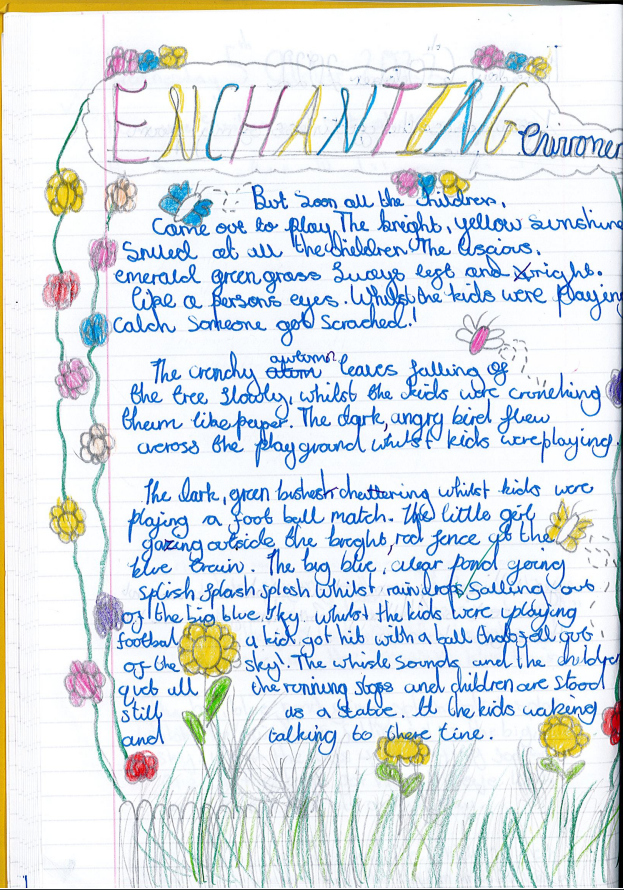 ENCHANTING Enviromen
But soon all the children,
Came out to play. The bright, yellow sunshine
Smiled at all the children. The luscious,
emerald green grass sways left and right.
like a persons eyes. Whilst the kids were playing
Catch someone got scrached.!
The crenchy autumn leaves falling of
the tree slowly, whilst the kids were cronching
theum like paper. The dark, angry bird flew
across the playground whilst kids were playing.
The dark, green bushes chattering whilst kids were
playing a foot ball match. The little girl
gazing outside the breght, red fence at the
blue train. The big blue, clear pond going
splish splash splash whilst raindrops falling out
of the big blue, sky. whilst the kids were playing
football a kid got hit with a ball that fell out
of the sky. The whisle sounds and the childre
quit all the running stops and children are stood
still as a statue. All the kids waking
and talking to there line.